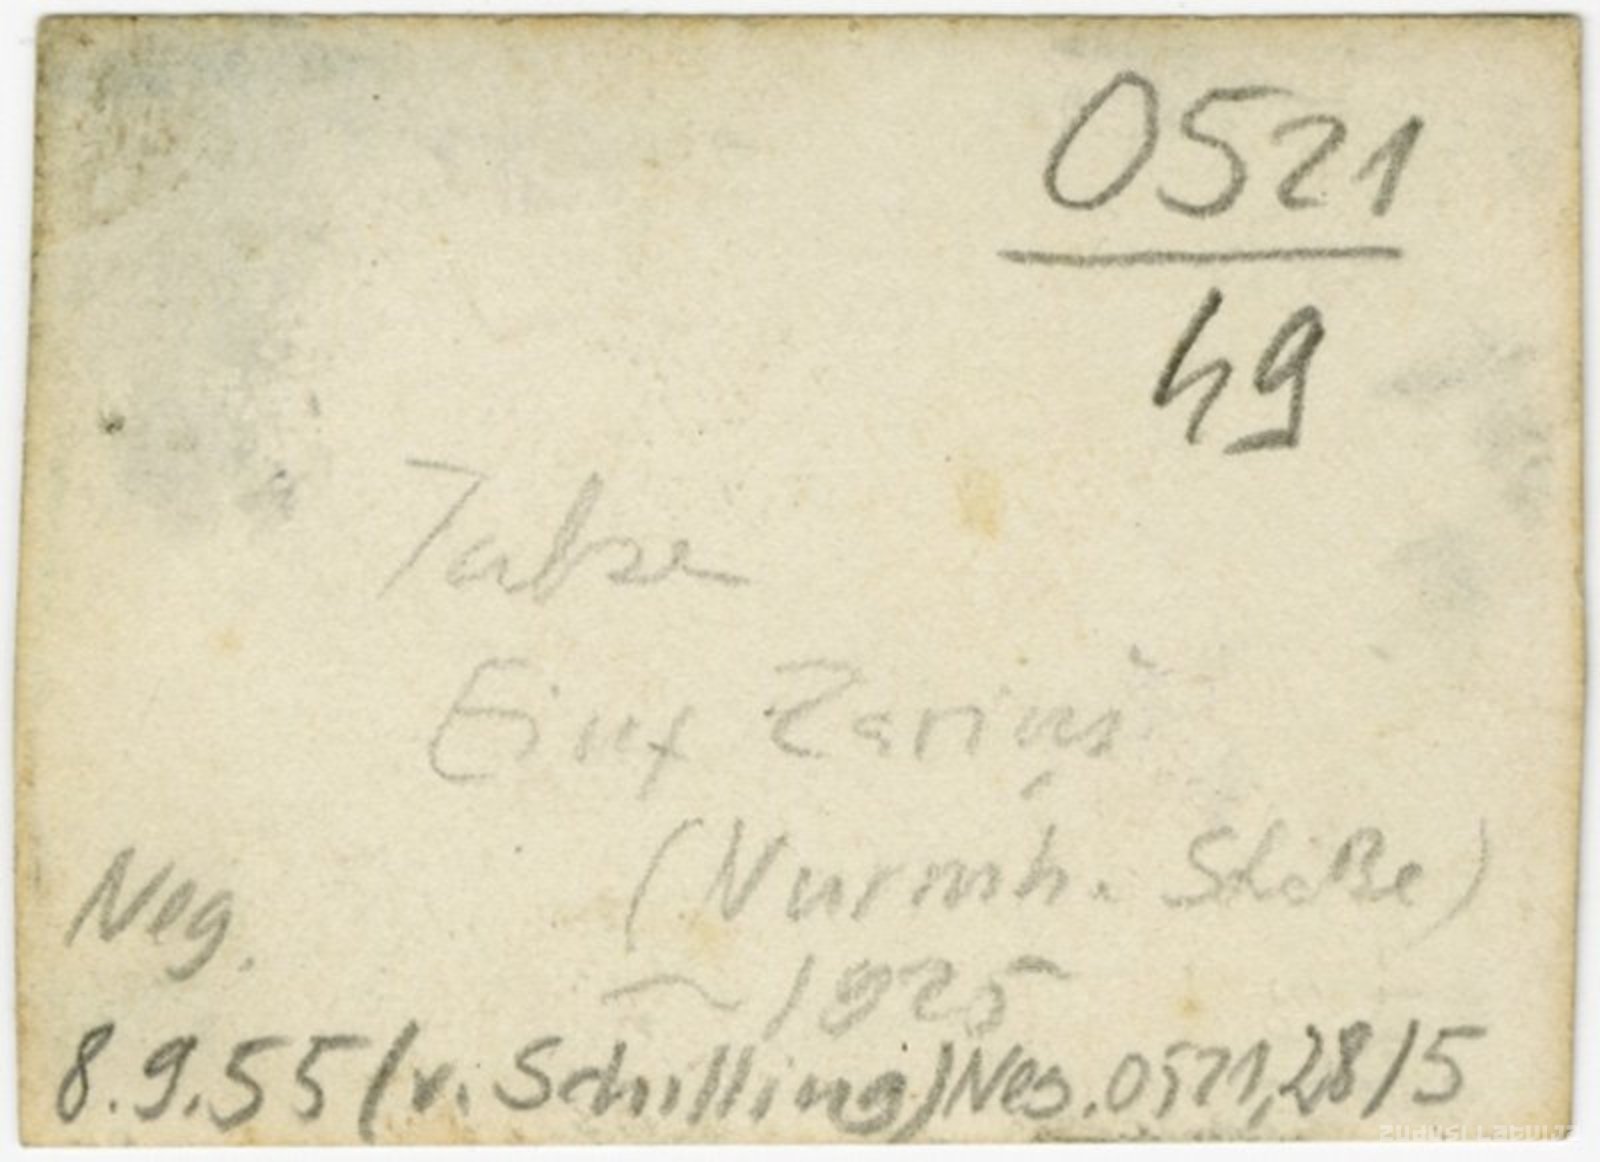 0521
49
Talsen
Einf Zariņš
(Nurmh. Straße)
Neg.
~ 1925
8.9.55 (v. Schilling) Neg. 0521, 28/5
zudusi Latvija